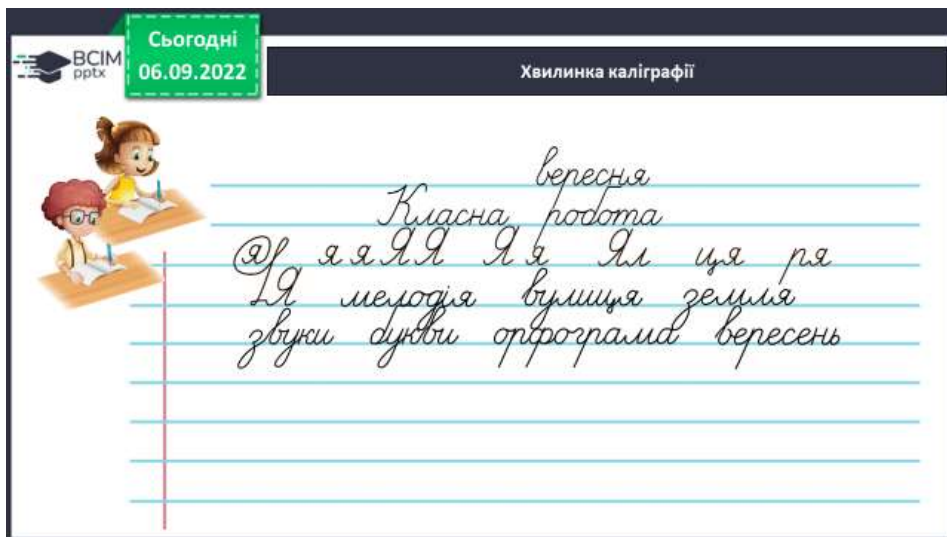 Сьогодні
06.09.2022
ВСІМ
pptx
Хвилинка каліграфії
вересня
Класна робота
я я Я Я Я я Ял ця ря
Я мелодія вулиця земля
звуки букви орфограма вересень